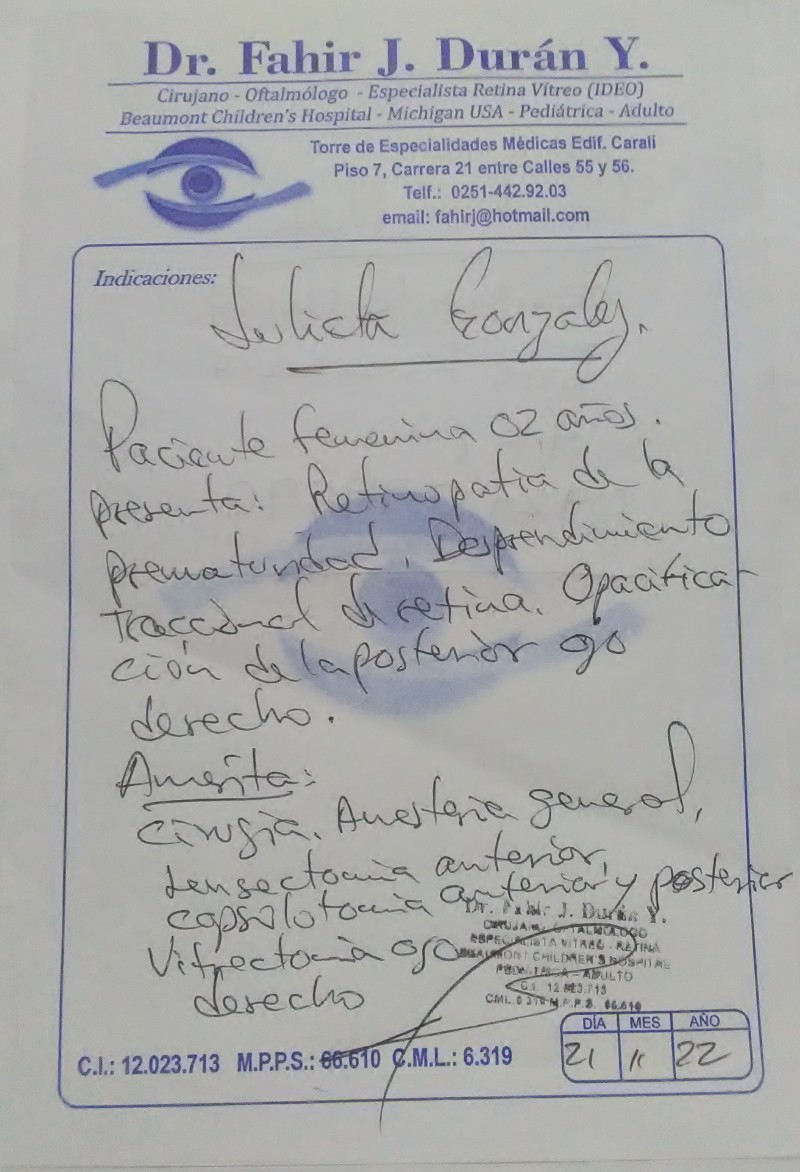 Dr. Fahir J. Durán Y.
Cirujano - Oftalmólogo - Especialista Retina Vítreo (IDEO)
Beaumont Children's Hospital - Michigan USA - Pediátrica - Adulto
Torre de Especialidades Médicas Edif. Carali
Piso 7, Carrera 21 entre Calles 55 y 56.
Telf.: 0251-442.92.03
email: fahirj@hotmail.com
Indicaciones:
Julieta Gonzalez.
Paciente femenina 02 años.
presenta: Retinopatia de la
prematuridad, Desprendimiento
Traccional de retina. Opacifica-
ción de la posterior ojo
derecho.
Amerita:
cirugía. Anestesia general,
Lensectomia anterior,
capsulotomia anterior y posterior
Vitrectomia ojo
derecho
Dr. Fahir J. Durán Y.
CIRUJANO OFTALMOLOGO
ESPECIALISTA VITREO - RETINA
BEAUMONT CHILDREN'S HOSPITAL
PEDIATRICA - ADULTO
C.I. 12.023.713
CML 6.319 M.P.P.S. 66.610
DÍA MES AÑO
21 11 22
C.I.: 12.023.713 M.P.P.S.: 66.610 C.M.L.: 6.319